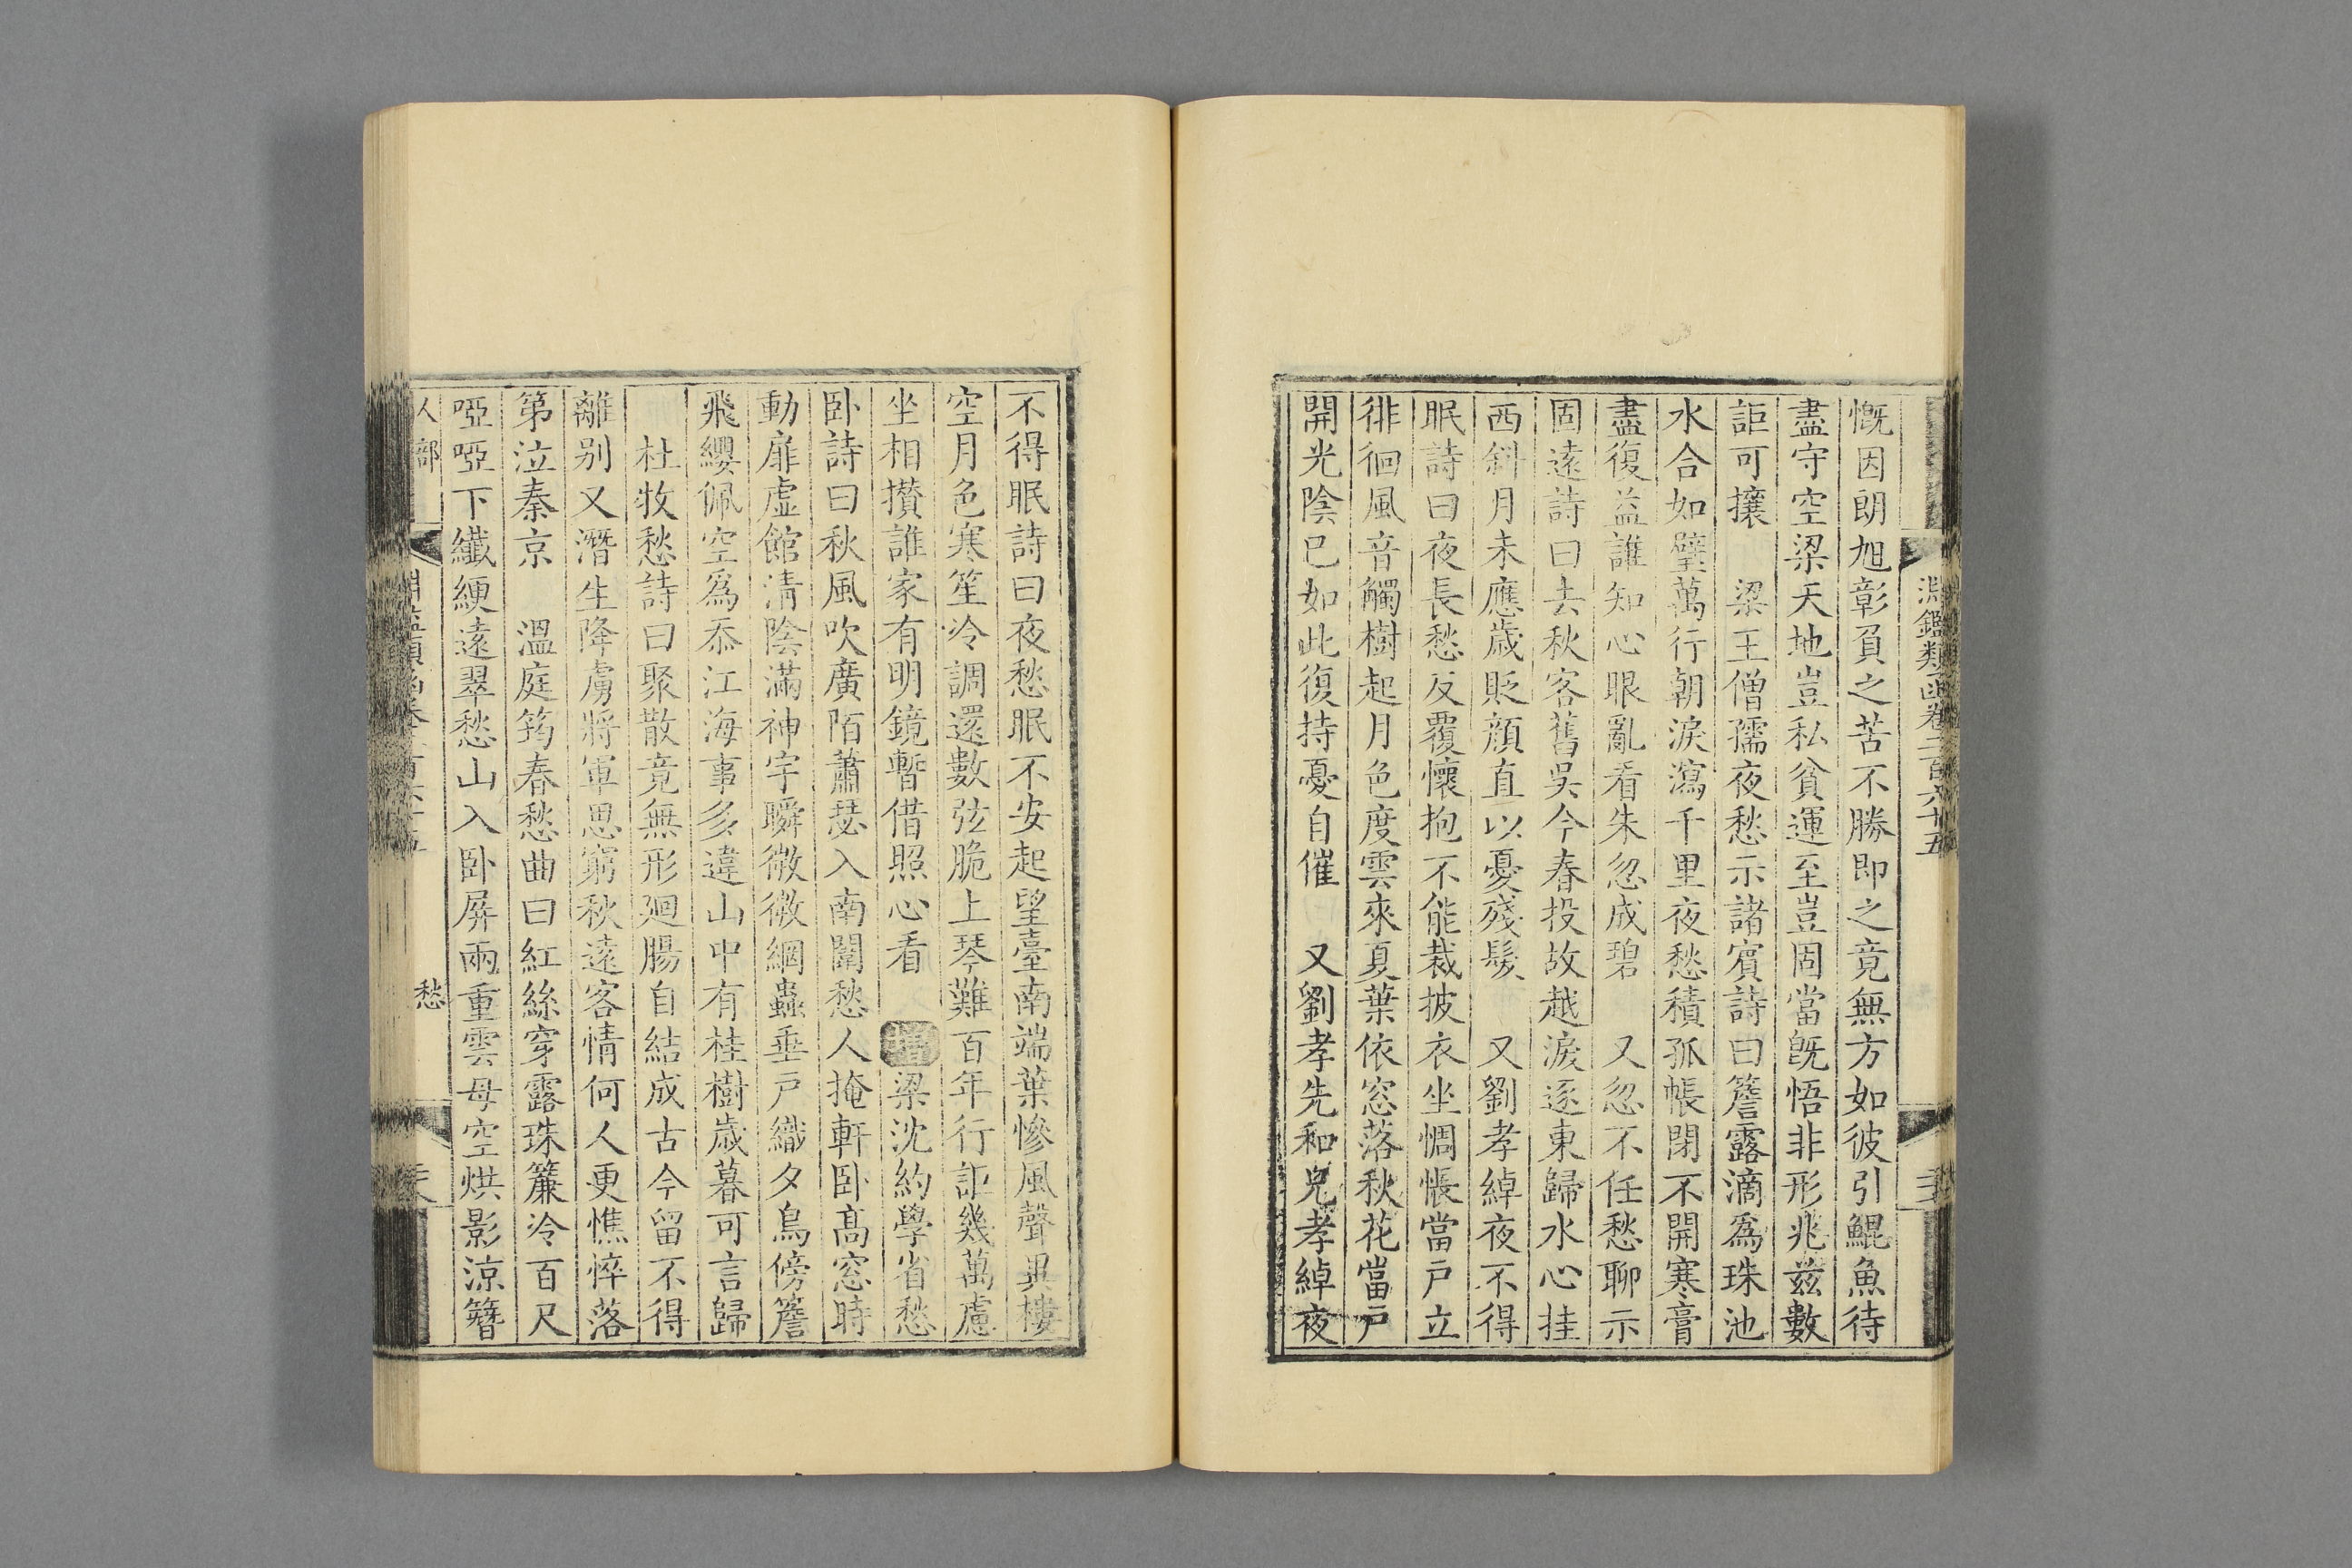 淵鑑類函卷二百六十五
慨因朗旭彰負之苦不勝即之竟無方如彼引鯤魚待
盡守空梁天地豈私貧運至豈固當旣悟非形兆茲數
詎可攘　梁王僧孺夜愁示諸賓詩曰簷露滴爲珠池
水合如璧萬行朝淚瀉千里夜愁積孤帳閉不開寒膏
盡復益誰知心眼亂看朱忽成碧　又忽不任愁聊示
固遠詩曰去秋客舊吳今春投故越淚逐東歸水心挂
西斜月未應歲貶顔直以憂殘髮　又劉孝綽夜不得
眠詩曰夜長愁反覆懷抱不能裁披衣坐惆悵當戸立
徘徊風音觸樹起月色度雲來夏葉依窓落秋花當戸
開光陰已如此復持憂自催　又劉孝先和兄孝綽夜
不得眠詩曰夜愁眠不安起望臺南端葉慘風聲異樓
空月色寒笙冷調還數弦脆上琴難百年行詎幾萬慮
坐相攢誰家有明鏡暫借照心看　增梁沈約學省愁
卧詩曰秋風吹廣陌蕭瑟入南闈愁人掩軒卧高窓時
動扉虛館清陰滿神宇曖微微網蟲垂戸織夕鳥傍簷
飛纓佩空爲忝江海事多違山中有桂樹歲暮可言歸
杜牧愁詩曰聚散竟無形廻腸自結成古今留不得
離别又潛生降虜將軍思窮秋遠客情何人更憔悴落
第泣秦京　溫庭筠春愁曲曰紅絲穿露珠簾冷百尺
啞啞下纖綆遠翠愁山入卧屏兩重雲母空烘影涼簪
人部
愁